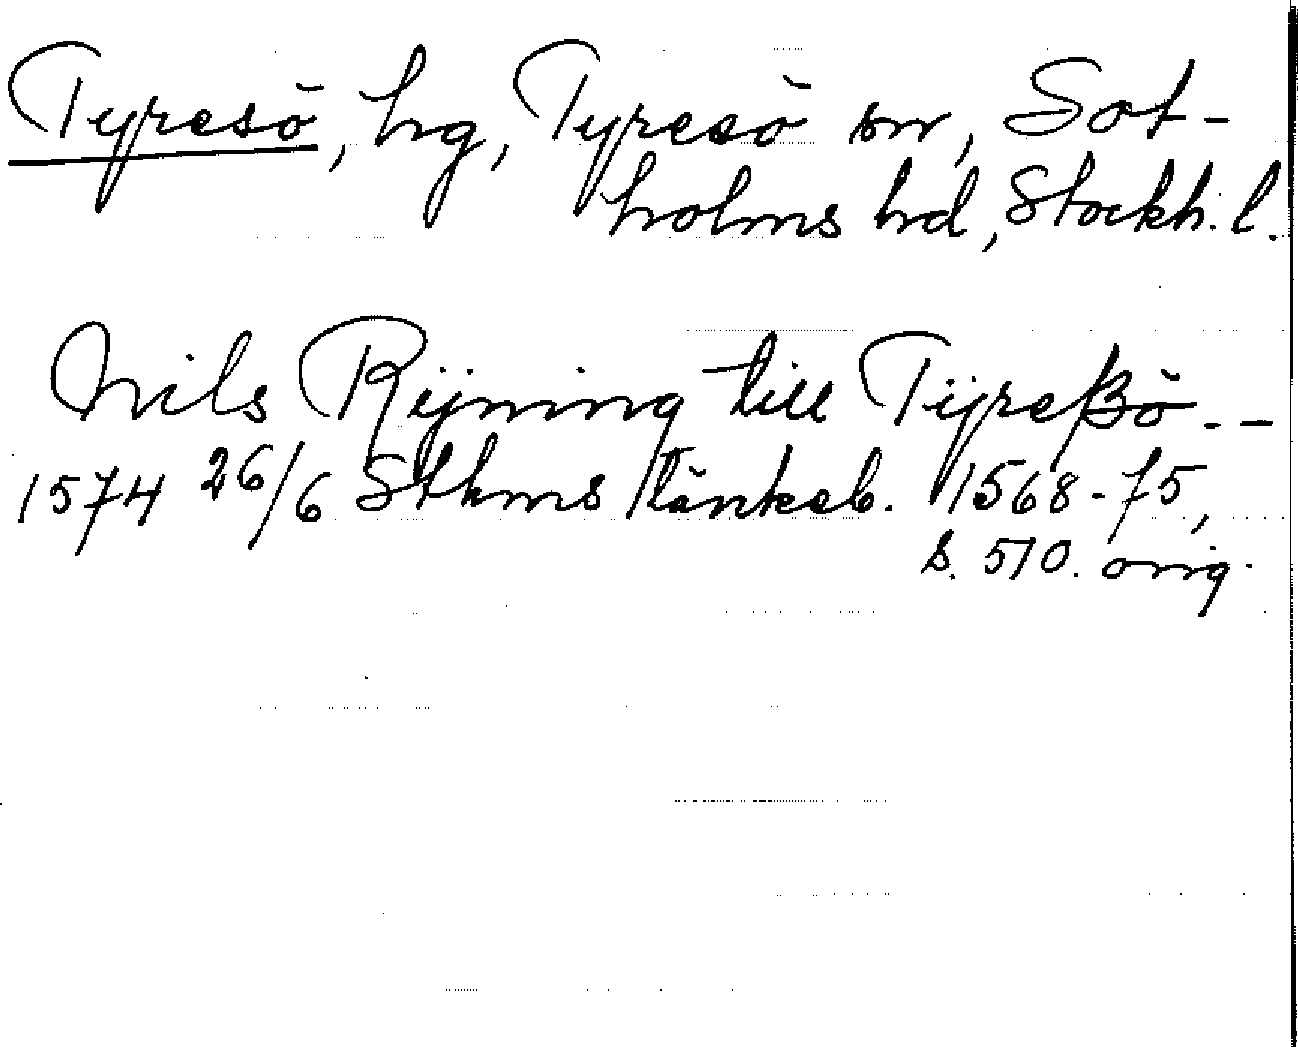 Tyresö, hg, Tyresö sn, Sot-
holms hd, Stockh. l.
Nils Rijning till Tijreßö. -
1574 26/6 Sthms tänkeb. 1568-75,
s. 510. orig.